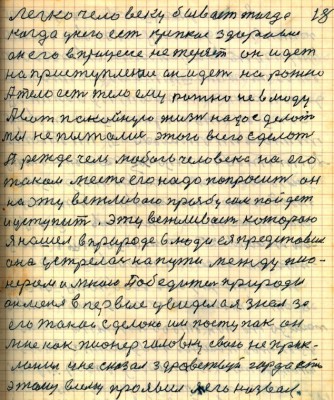 Легко человеку бывает тогда 18
когда у него ест крепкае здоровие
он его в прицепе не теряет он идет
на преступление он идет на рожно
А тело ест тело ему ровно не в моду
А вот пакойную жизн надо зделоть
мы не пыталис этого всего зделот
Прежде чем любого человека на его
таком месте его надо попросит он
на эту вежливаю прозбу сам пойдет
и уступит. Эту вежливаст котораю
я нашел в природе в люди ея представил
она устрелас на пути между пио-
нером и мною Победител природы
он меня в первые увидел а я знал за
его такой сделоно им поступак он
мне как пионер головку свою не прик-
лонил и не сказал здравствуй гордаст
этому всему проявил я его назвал.